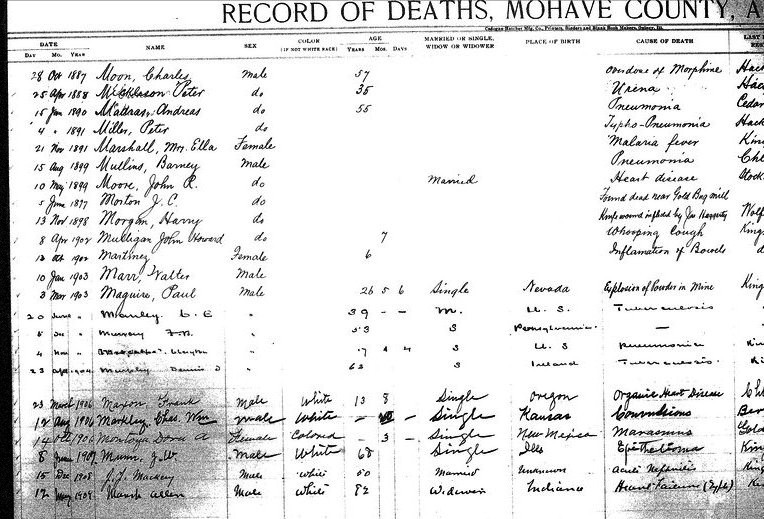 RECORD OF DEATHS, MOHAVE COUNTY, A
DATE NAME SEX COLOR (IF NOT WHITE RACE) AGE MARRIED OR SINGLE, WIDOW OR WIDOWER PLACE OF BIRTH CAUSE OF DEATH LAST
DAY MO. YEAR YEARS MOS. DAYS
28 Oct 1887 Moon, Charles Male 57 overdose of Morphine Hack
25 Apr 1888 Peter do 35 Urena Hack
15 Jan 1890 Andreas do 55 Pneumonia Cedar
4 " 1891 Miller, Peter do Typho-Pneumonia Hack
21 Nov 1891 Marshall, Mrs. Ella Female Malaria fever King
15 Aug 1899 Mullins, Barney Male Pneumonia Chl
10 May 1899 Moore, John R. do Married Heart disease Stock
5 June 1897 Morton J. C. do Found dead near Gold Bug mill
13 Nov 1898 Morgan, Harry do Knife wound inflicted by Jas Wolf
8 Apr 1902 Mulligan John Howard do 7 Whooping Cough King
12 Oct 1902 Martinez Female 6 Inflamation of Bowels d
10 Jan 1903 Marr, Walter Male
3 Mar 1903 Maguire, Paul Male 26 5 6 Single Nevada Explosion of Powder in Mine King
20 June Manley L. E " 39 - - M. U. S. Tuberculosis
5 Murray " 53 S Pennsylvania —
4 Nov " 4 S U. S Pneumonia
23 Apr Murphy Dennis " 62 S Ireland Tuberculosis
23 March 1906 Maxon Frank Male White 13 8 Single Oregon Organic Heart Disease Chl
12 Aug 1906 Markley Chas. Wm Male White - - Single Kansas Convulsions
14 1906 Montoya Dora A Female Colored - 3 - Single New Mexico Marasmus Gold
8 1907 Munn, J. W. Male White 68 Single Ills Epithelioma King
15 Dec 1908 J. J. Mackey Male White 50 Married Unknown Acute Nephritis King
12 May 1909 Marsh Allen Male White 82 Widower Indiana Heart Failure